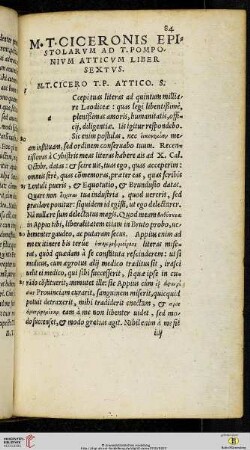 84
M. T. CICERONIS EPI
STOLARVM AD T. POMPO
NIVM ATTICVM LIBER
SEXTVS.
M. T. CICERO T. P. ATTICO. S.
Ccepi tuas literas ad quintum milliare
Laodiceæ: quas legi libentissime,
plenissimas amoris, humanitatis, officij,
diligentiæ. iis igitur respondebo.
Sic enim postulas, nec
meam instituam. sed ordinem conseruabo tuum.
Recentissimas à Cybistris meas literas habere ais ad X. Cal.
Octobr. datas: & scire uis, tuas ego, quas acceperim:
omnes fere, quas commemoras, præter eas, quas scribis
Lentuli pueris, & Equotutio, & Brundusio datas.
Quare non tua industria, quod uereris, sed
præclare ponitur: siquidem id egisti, ut ego delectarer.
Nã nulla re sum delectatus magis. Quod meam
in Appio tibi, liberalitatem etiam in Bruto probo, uehementer
gaudeo. ac putaram secus. Appius enim ad
me ex itinere bis terue literas miserat,
quòd quædam à se constituta rescinderem: ut si
medicus, cum ægrotus alij medico traditus sit, irasci
uelit ei medico, qui sibi successerit, si quæ ipse in curãdo
cõstituerit, immutet ille: sic Appius cum
prouinciam curarit, sanguinem miserit, quicquid
potuit detraxerit, mihi tradiderit enectam, &
eam à me non libenter uidet, sed modo
succenset, & modo gratias agit. Nihil enim à me fit